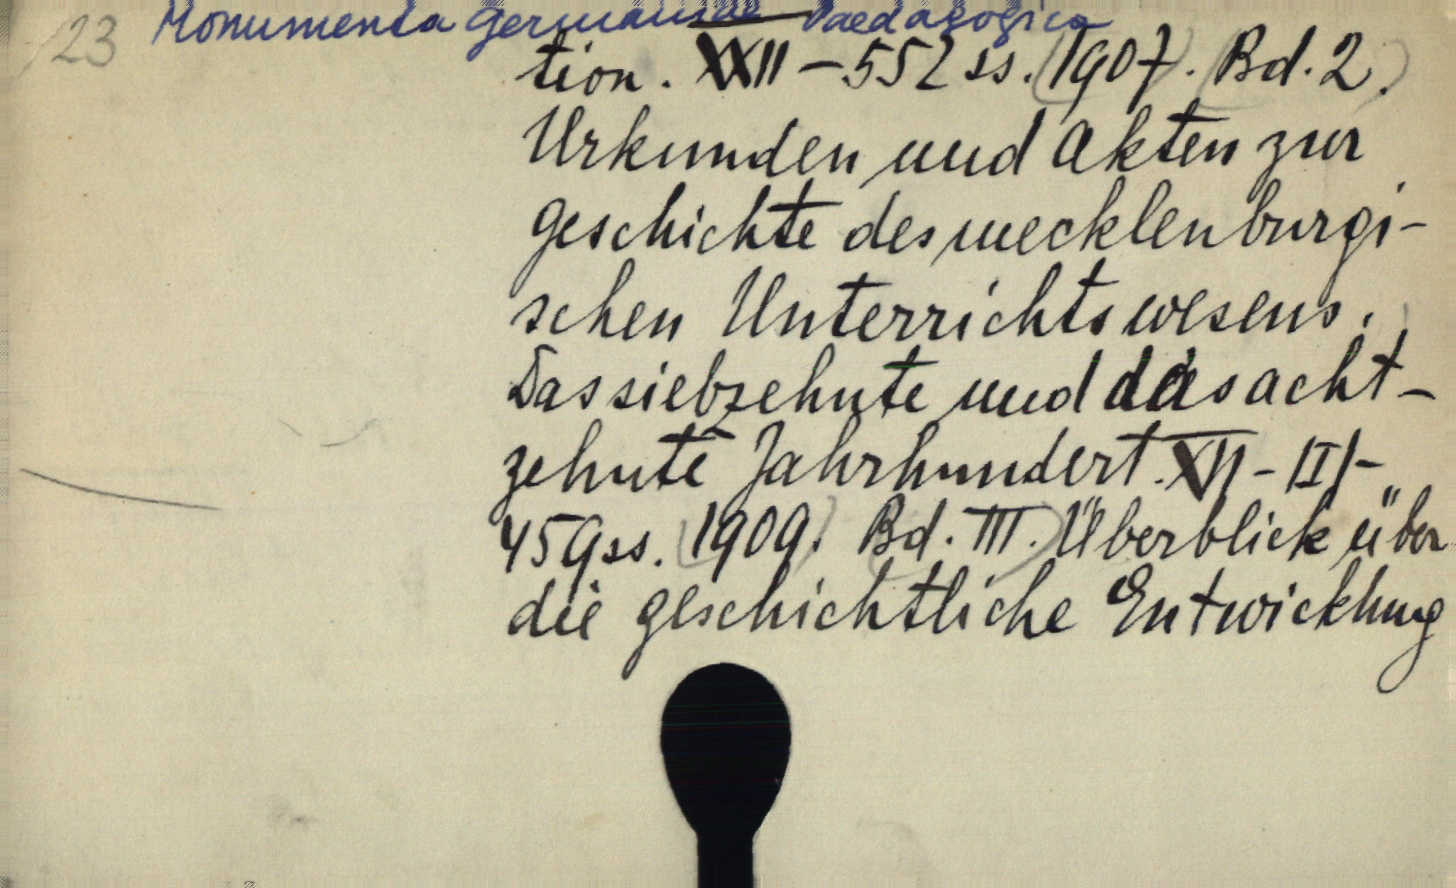 23 Monumenta Germaniae Paedagogica
tion. XXII – 552 ss. (1907). (Bd. 2.)
Urkunden und Akten zur
Geschichte des mecklenburgi-
schen Unterrichtswesens.
Das siebzehnte und das acht-
zehnte Jahrhundert. XII - III -
459 ss. (1909). (Bd. III.) Überblick über
die geschichtliche Entwicklung